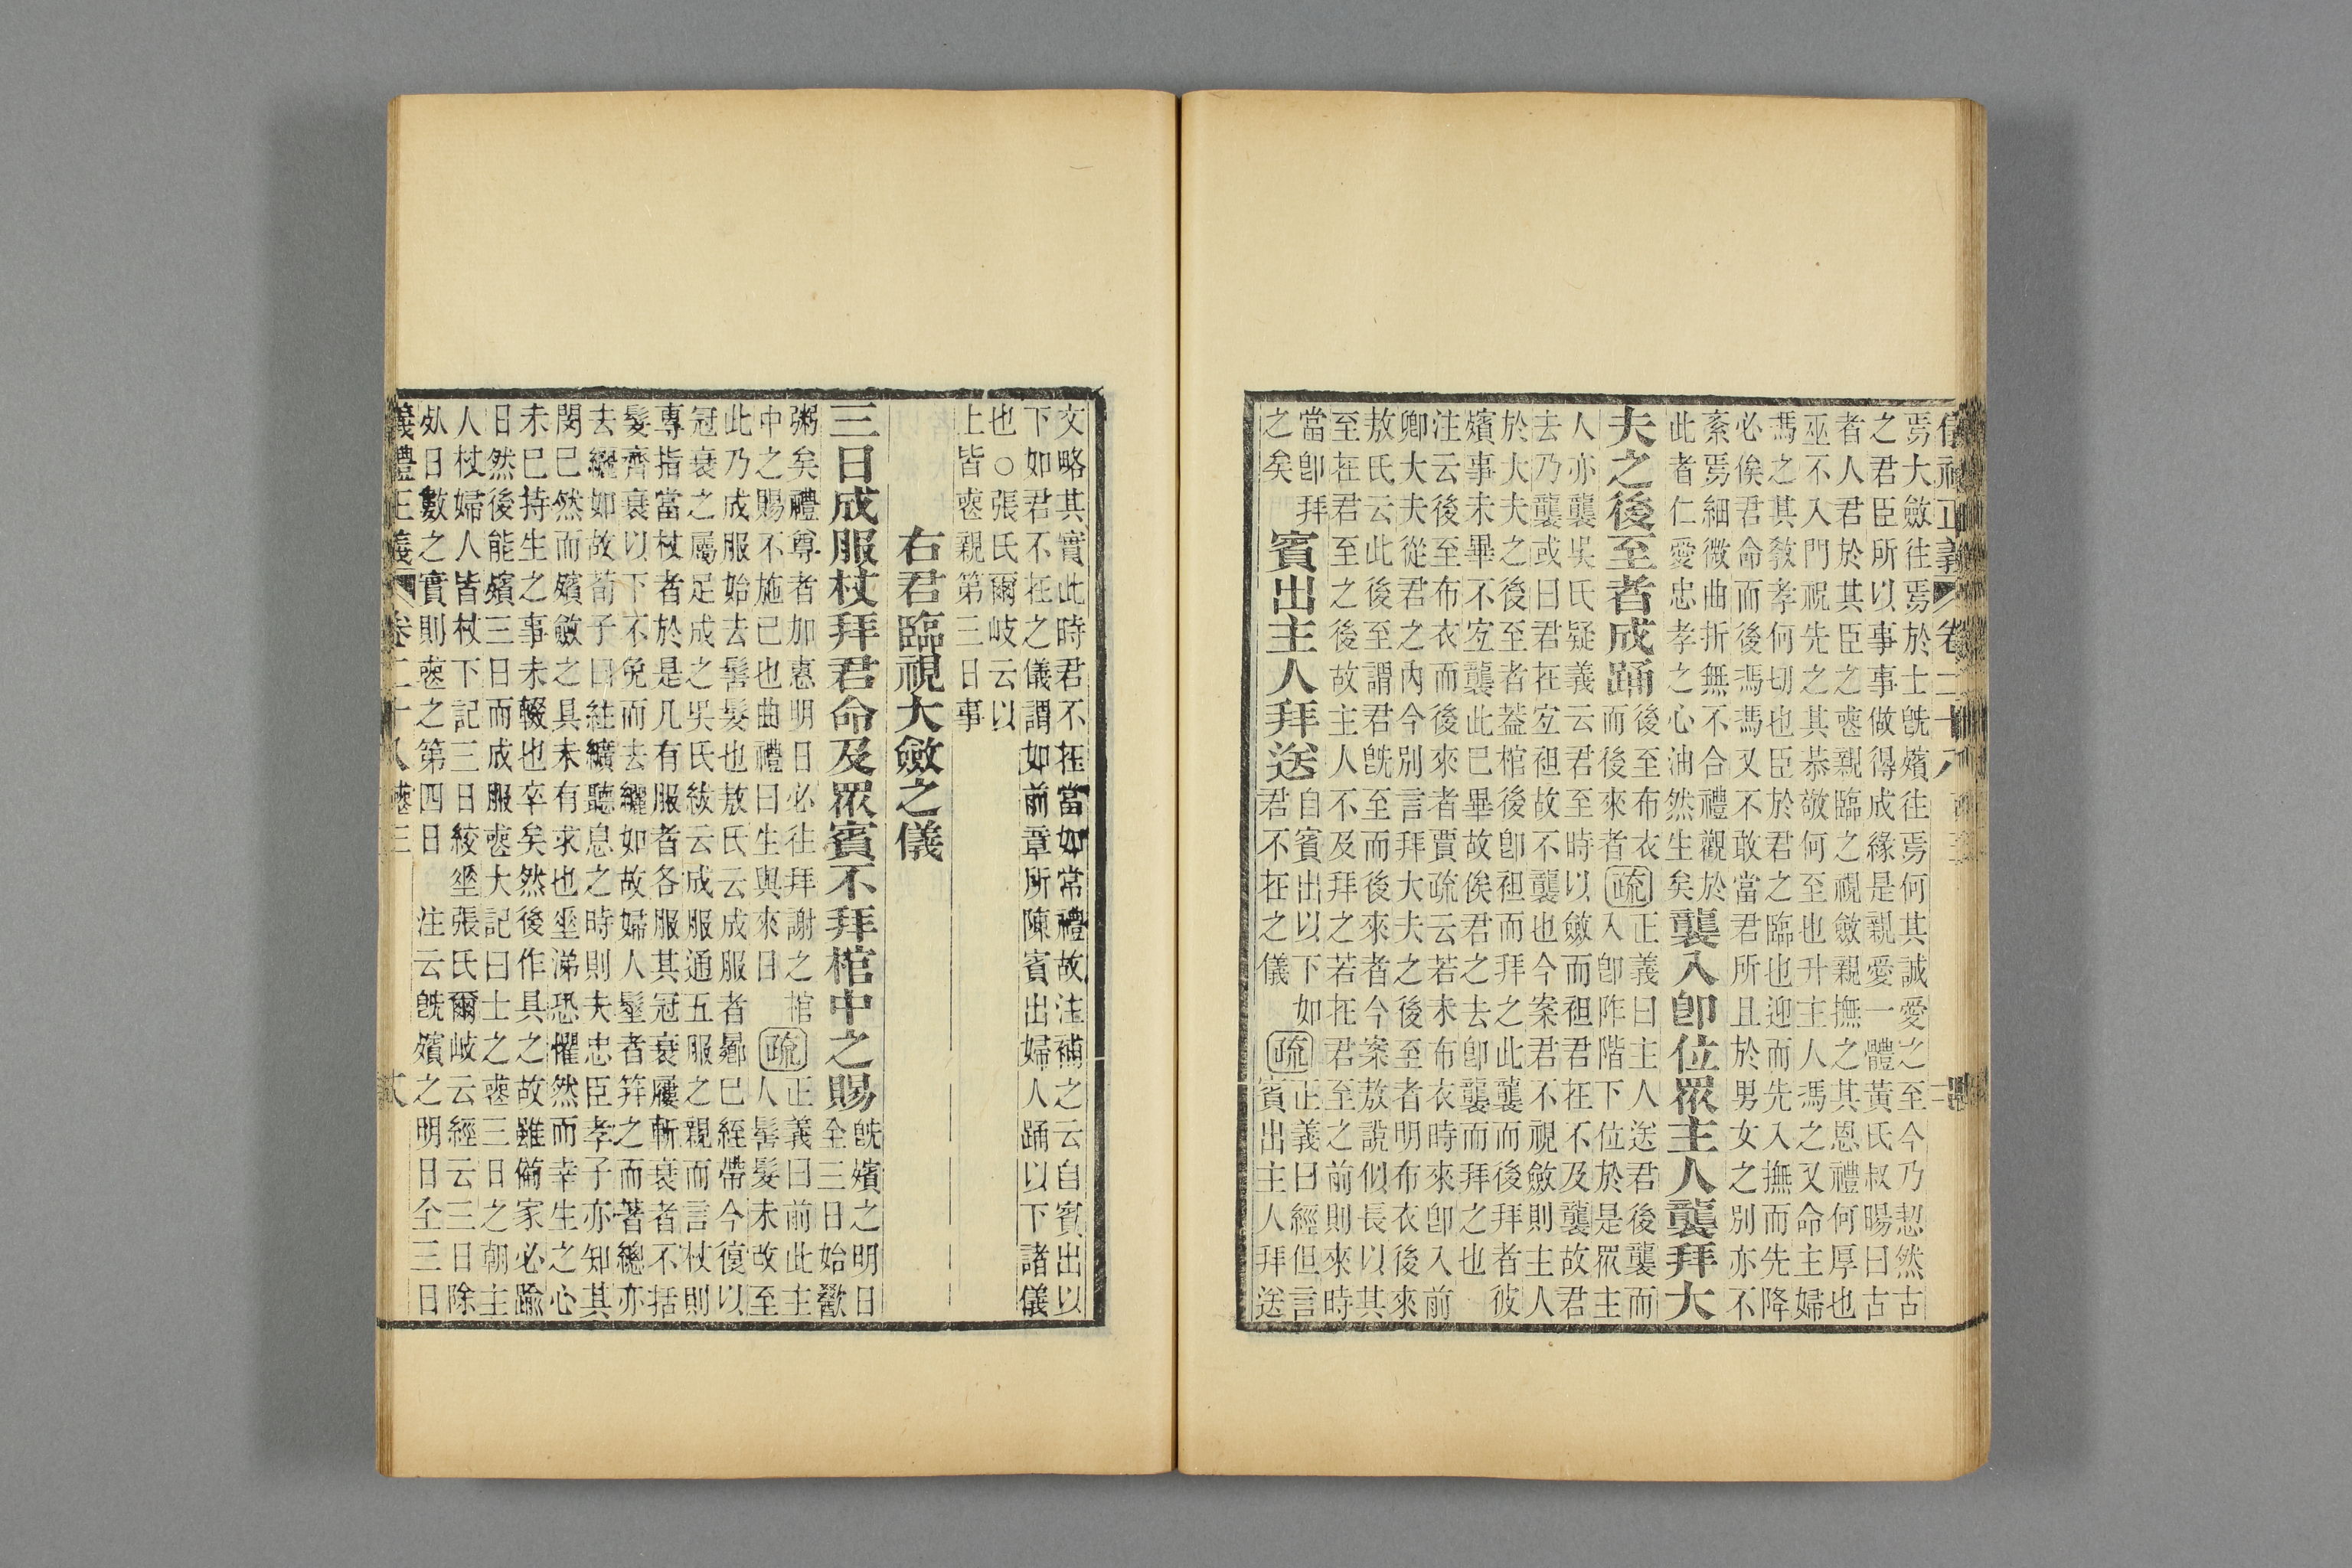 焉大斂往焉於士旣殯往焉何其誠愛之至今乃恝然古
之君臣所以事事做得成緣是親愛一體黃氏叔暘曰古
者人君於其臣之喪親臨之視斂親撫之其恩禮何厚也
巫不入門祝先之其恭敬何至也升主人馮之又命主婦
馮之其敎孝何切也臣於君之臨也迎而先入撫而先降
必俟君命而後馮馮又不敢當君所且於男女之別亦不
紊焉細微曲折無不合禮觀於
此者仁愛忠孝之心油然生矣襲入卽位眾主人襲拜大
夫之後至者成踊後至布衣而後來者疏正義曰主人送君後襲而入卽阼階下位於是眾主
人亦襲吳氏疑義云君至時以斂而袒君在不及襲故君
去乃襲或曰君在宐袒故不襲也今案君不視斂則主人
於大夫之後至者葢棺後卽袒而拜之此襲而後拜者彼
殯事未畢不宐襲此巳畢故俟君之去卽襲而拜之也
注云後至布衣而後來者賈疏云若未布衣時來卽入前
卿大夫從君之內今別言拜大夫之後至者明布衣後來
敖氏云此後至謂君旣至而後來者今案敖說似長以其
至在君至之後故主人不及拜之若在君至之前則來時
當卽拜
之矣賓出主人拜送自賓出以下如君不在之儀疏正義曰經但言賓出主人拜送
文略其實此時君不在當如常禮故注補之云自賓出以
下如君不在之儀謂如前章所陳賓出婦人踊以下諸儀
也○張氏爾岐云以
上皆喪親第三日事
右君臨視大斂之儀
三日成服杖拜君命及眾賓不拜棺中之賜旣殯之明日全三日始歠
粥矣禮尊者加惠明日必往拜謝之棺中之賜不施己也曲禮曰生與來日疏正義曰前此主人髻髮未改至
此乃成服始去髻髮也敖氏云成服者曏巳絰帶今復以
冠衰之屬足成之吳氏紱云成服通五服之親而言杖則
專指當杖者於是凡有服者各服其冠衰屨斬衰者不括
髮齊衰以下不免而去纚如故婦人髽者筓之而著總亦
去纚如故荀子曰紸纊聽息之時則夫忠臣孝子亦知其
閔已然而殯斂之具未有求也垂涕恐懼然而幸生之心
未巳持生之事未輟也卒矣然後作具之故雖備家必踰
日然後能殯三日而成服喪大記曰士之喪三日之朝主
人杖婦人皆杖下記三日絞垂張氏爾岐云經云三日除
死日數之實則喪之第四日　注云旣殯之明日全三日